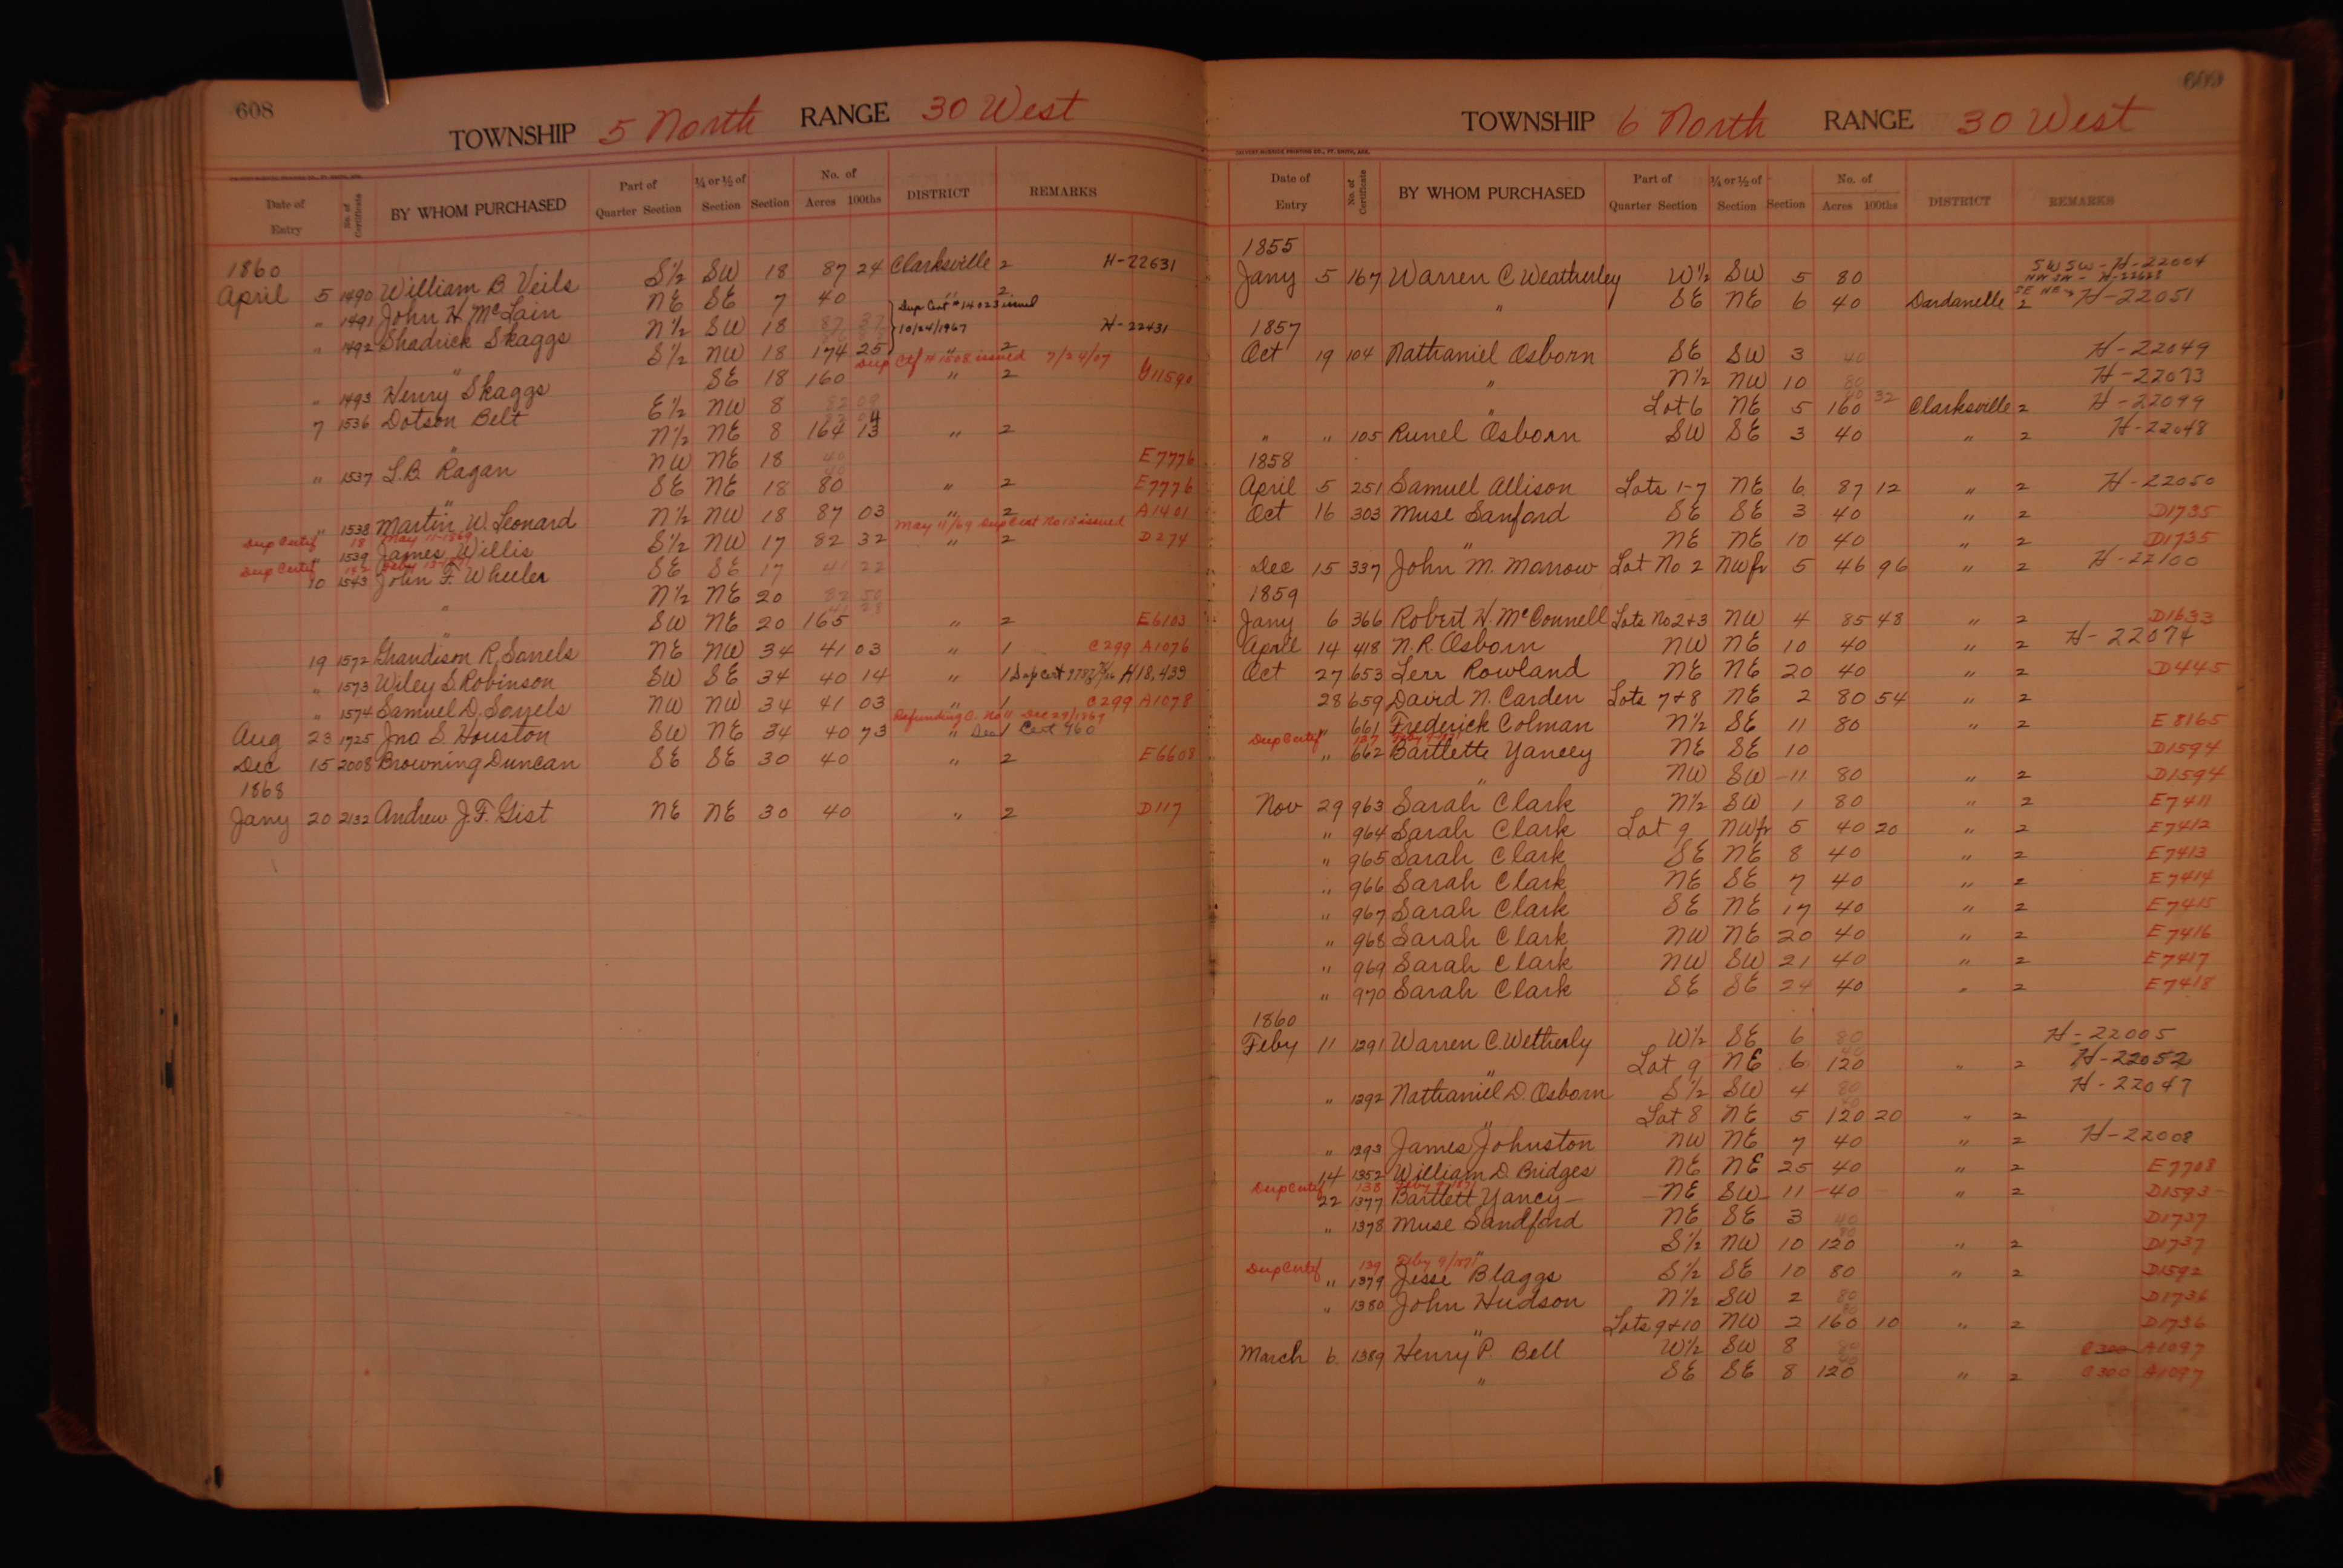 608
TOWNSHIP 5 North RANGE 30 West
Date of Entry No. of Certificate BY WHOM PURCHASED Part of Quarter Section ¼ or ½ of Section Section No. of Acres 100ths DISTRICT REMARKS
1860
April 5 1490 William B Veils S½ SW 18 87 24 Clarksville 2 H-22631
" 1491 John H McLain NE SE 7 40 " 2
Dup Cert # 14023 issued
10/24/1967
" 1492 Shadrick Skaggs N½ SW 18 87 37 H-22431
" S½ NW 18 174 25 " 2
Dup Ctf # 1508 issued 7/24/07
" 1493 Henry Skaggs SE 18 160 " 2 G11590
7 1536 Dotson Belt E½ NW 8 82 09
" N½ NE 8 164 13 " 2
" 1537 L.B. Ragan NW NE 18 40 E7776
" SE NE 18 80 " 2 E7776
" 1538 Martin W. Leonard N½ NW 18 87 03 " 2 A1401
Dup Certif 18 May 11-1869 May 11/69 Dup Cert No 18 issued
" 1539 James Willis S½ NW 17 82 32 " 2 D274
Dup Certif 142
10 1543 John F. Wheeler SE SE 17 41 22
" N½ NE 20 82 50
" SW NE 20 165 " 2 E6103
19 1572 Grandison R. Sorrels NE NW 34 41 03 " 1 C299 A1076
" 1573 Wiley S. Robinson SW SE 34 40 14 " 1 Dup Cert H18,439
" 1574 Samuel D. Sorrels NW NW 34 41 03 " 1 C299 A1078
Refunding C. No 11 Dec 29/1869
Aug 23 1725 Jno S. Houston SW NE 34 40 73 " Cert 960
Dec 15 2008 Browning Duncan SE SE 30 40 " 2 E6608
1868
Jany 20 2132 Andrew J.F. Gist NE NE 30 40 " 2 D117
609
TOWNSHIP 6 North RANGE 30 West
CALVERT-McBRIDE PRINTING CO., FT. SMITH, ARK.
Date of Entry No. of Certificate BY WHOM PURCHASED Part of Quarter Section ¼ or ½ of Section Section No. of Acres 100ths DISTRICT REMARKS
1855
SW SW - H-22004
Jany 5 167 Warren C Weatherley W½ SW 5 80 NW SW - H-22628
" SE NE 6 40 Dardanelle 2 SE NE H-22051
1857
Oct 19 104 Nathaniel Osborn SE SW 3 40 H-22049
" N½ NW 10 80 H-22073
" Lot 6 NE 5 160 32 Clarksville 2 H-22099
" " 105 Runel Osborn SW SE 3 40 " 2 H-22048
1858
April 5 251 Samuel Allison Lots 1-7 NE 6 87 12 " 2 H-22050
Oct 16 303 Muse Sanford SE SE 3 40 " 2 D1735
" NE NE 10 40 " 2 D1735
Dec 15 337 John M. Morrow Lot No 2 NW fr 5 46 96 " 2 H-22100
1859
Jany 6 366 Robert H. McConnell Lots No 2+3 NW 4 85 48 " 2 D1633
April 14 418 N.R. Osborn NW NE 10 40 " 2 H-22074
Oct 27 653 Lerr Rowland NE NE 20 40 " 2 D445
28 659 David N. Carden Lots 7+8 NE 2 80 54 " 2
" 661 Frederick Colman N½ SE 11 80 " 2 E8165
Dup Certif 137
" 662 Bartlette Yancey NE SE 10 D1594
" NW SW 11 80 " 2 D1594
Nov 29 963 Sarah Clark N½ SW 1 80 " 2 E7411
" 964 Sarah Clark Lot 9 NW fr 5 40 20 " 2 E7412
" 965 Sarah Clark SE NE 8 40 " 2 E7413
" 966 Sarah Clark NE SE 7 40 " 2 E7414
" 967 Sarah Clark SE NE 17 40 " 2 E7415
" 968 Sarah Clark NW NE 20 40 " 2 E7416
" 969 Sarah Clark NW SW 21 40 " 2 E7417
" 970 Sarah Clark SE SE 24 40 " 2 E7418
1860
Feby 11 1291 Warren C. Wetherly W½ SE 6 80 H-22005
" Lot 9 NE 6 120 " 2 H-22052
" 1292 Nathaniel D. Osborn S½ SW 4 80 H-22047
" Lot 8 NE 5 120 20 " 2
" 1293 James Johnston NW NE 7 40 " 2 H-22008
14 1352 William D. Bridges NE NE 25 40 " 2 E7708
Dup Certif 138 Feby 9/1871
22 1377 Bartlett Yancy NE SW 11 40 " 2 D1593
" 1378 Muse Sandford NE SE 3 40 D1737
" S½ NW 10 120 " 2 D1737
Dup Certif 139 Feby 9/1871
" 1379 Jesse Blaggs S½ SE 10 80 " 2 D1592
" 1380 John Hudson N½ SW 2 80 D1736
" Lots 9+10 NW 2 160 10 " 2 D1736
March 6 1389 Henry P. Bell W½ SW 8 80 C300 A1097
" SE SE 8 120 " 2 C300 A1097